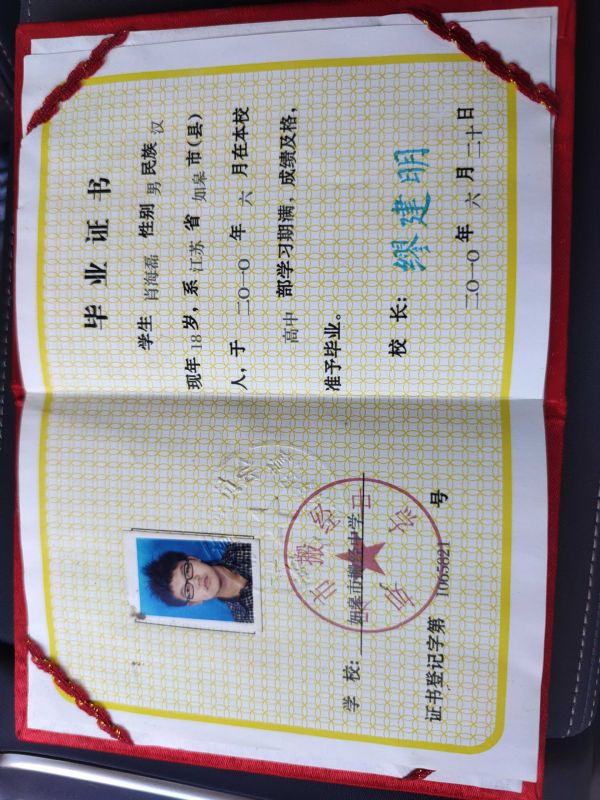 毕业证书
学生 肖海磊 性别 男 民族 汉
现年 18 岁，系 江苏 省 如皋 市(县)
人，于 二〇一〇 年 六 月在本校
高中 部学习期满，成绩及格，
准予毕业。
校 长： 缪建明
二〇一〇 年 六 月 二十日
学 校： 如皋市搬经中学
证书登记字第 1005021 号